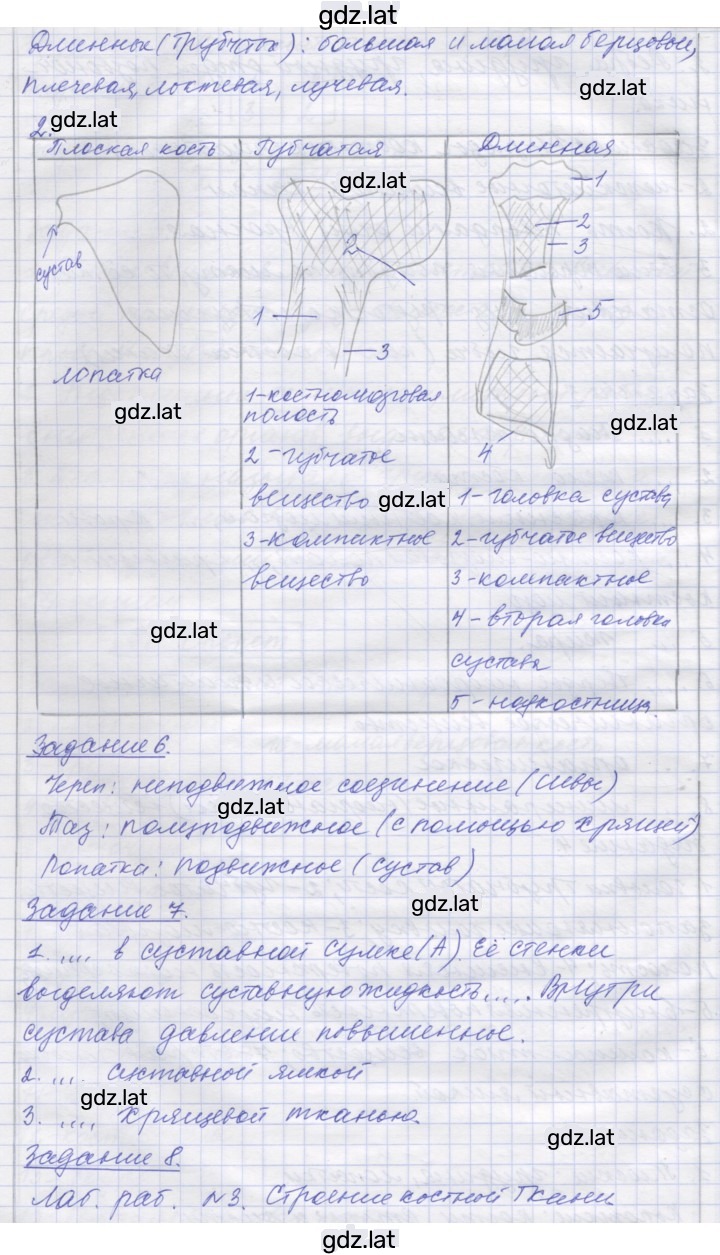 gdz.lat
Длинные (Трубчатые): большая и малая берцовые,
плечевая, локтевая, лучевая.
gdz.lat
2. gdz.lat
Плоская кость Губчатая Длинная
gdz.lat
сустав
лопатка
gdz.lat
1 2 3
1-костномозговая
полость
2-губчатое
вещество gdz.lat
3-компактное
вещество
1 2 3 5 4
gdz.lat
1-головка сустава
2-губчатое вещество
3-компактное
4-вторая головка
сустава
5-надкостница.
gdz.lat
Задание 6.
Череп: неподвижное соединение (швы)
gdz.lat
Таз: полуподвижное (с помощью хрящей)
Лопатка: подвижное (сустав)
Задание 7. gdz.lat
1. .... в суставной сумке (А) Её стенки
выделяют суставную жидкость..... Внутри
сустава давление повышенное.
2. .... суставной ямкой
gdz.lat
3. .... хрящевой тканью.
gdz.lat
Задание 8.
Лаб. раб. №3. Строение костной Ткани
gdz.lat